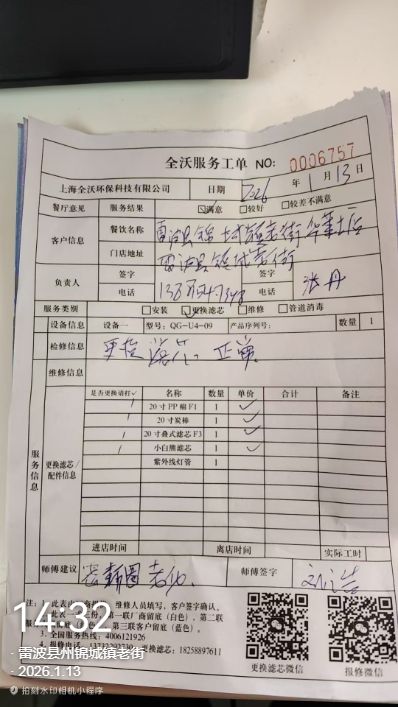 全沃服务工单 NO: 0006757
上海全沃环保科技有限公司 日期 2026 年 1 月 13 日
餐厅意见 服务结果 ☑满意 □较好 □较差不满意
客户信息 餐饮名称 雷波县锦城镇老街华莱士后
门店地址 雷波县锦城老街
负责人 签字 签字
电话 电话 张丹
服务类别 □安装 ☑更换滤芯 □维修 □管道消毒
设备信息 设备一 型号: QG-U4-09 产品序列号: 数量 1
检修信息 更换滤芯、正常
维修信息
服务信息
更换滤芯/配件信息
是否更换请打✓ 名称 数量 单价 合计 备注
20寸PP棉F1 1 ✓
20寸炭棒 1 ✓
20寸叠式滤芯F3 1 ✓
小白熊滤芯 1 ✓
紫外线灯管 1
进店时间 离店时间 实际工时
师傅建议 密封圈老化 师傅签字
注:
维修人员填写,客户签字确认,
第一联厂商留底(白色),第二联
第三联客户留底(蓝色)。
3、全国服务热线: 4006121926
18258897611
更换滤芯微信 报修微信
14:32
· 雷波县州锦城镇老街
· 2026.1.13
拍刻水印相机小程序